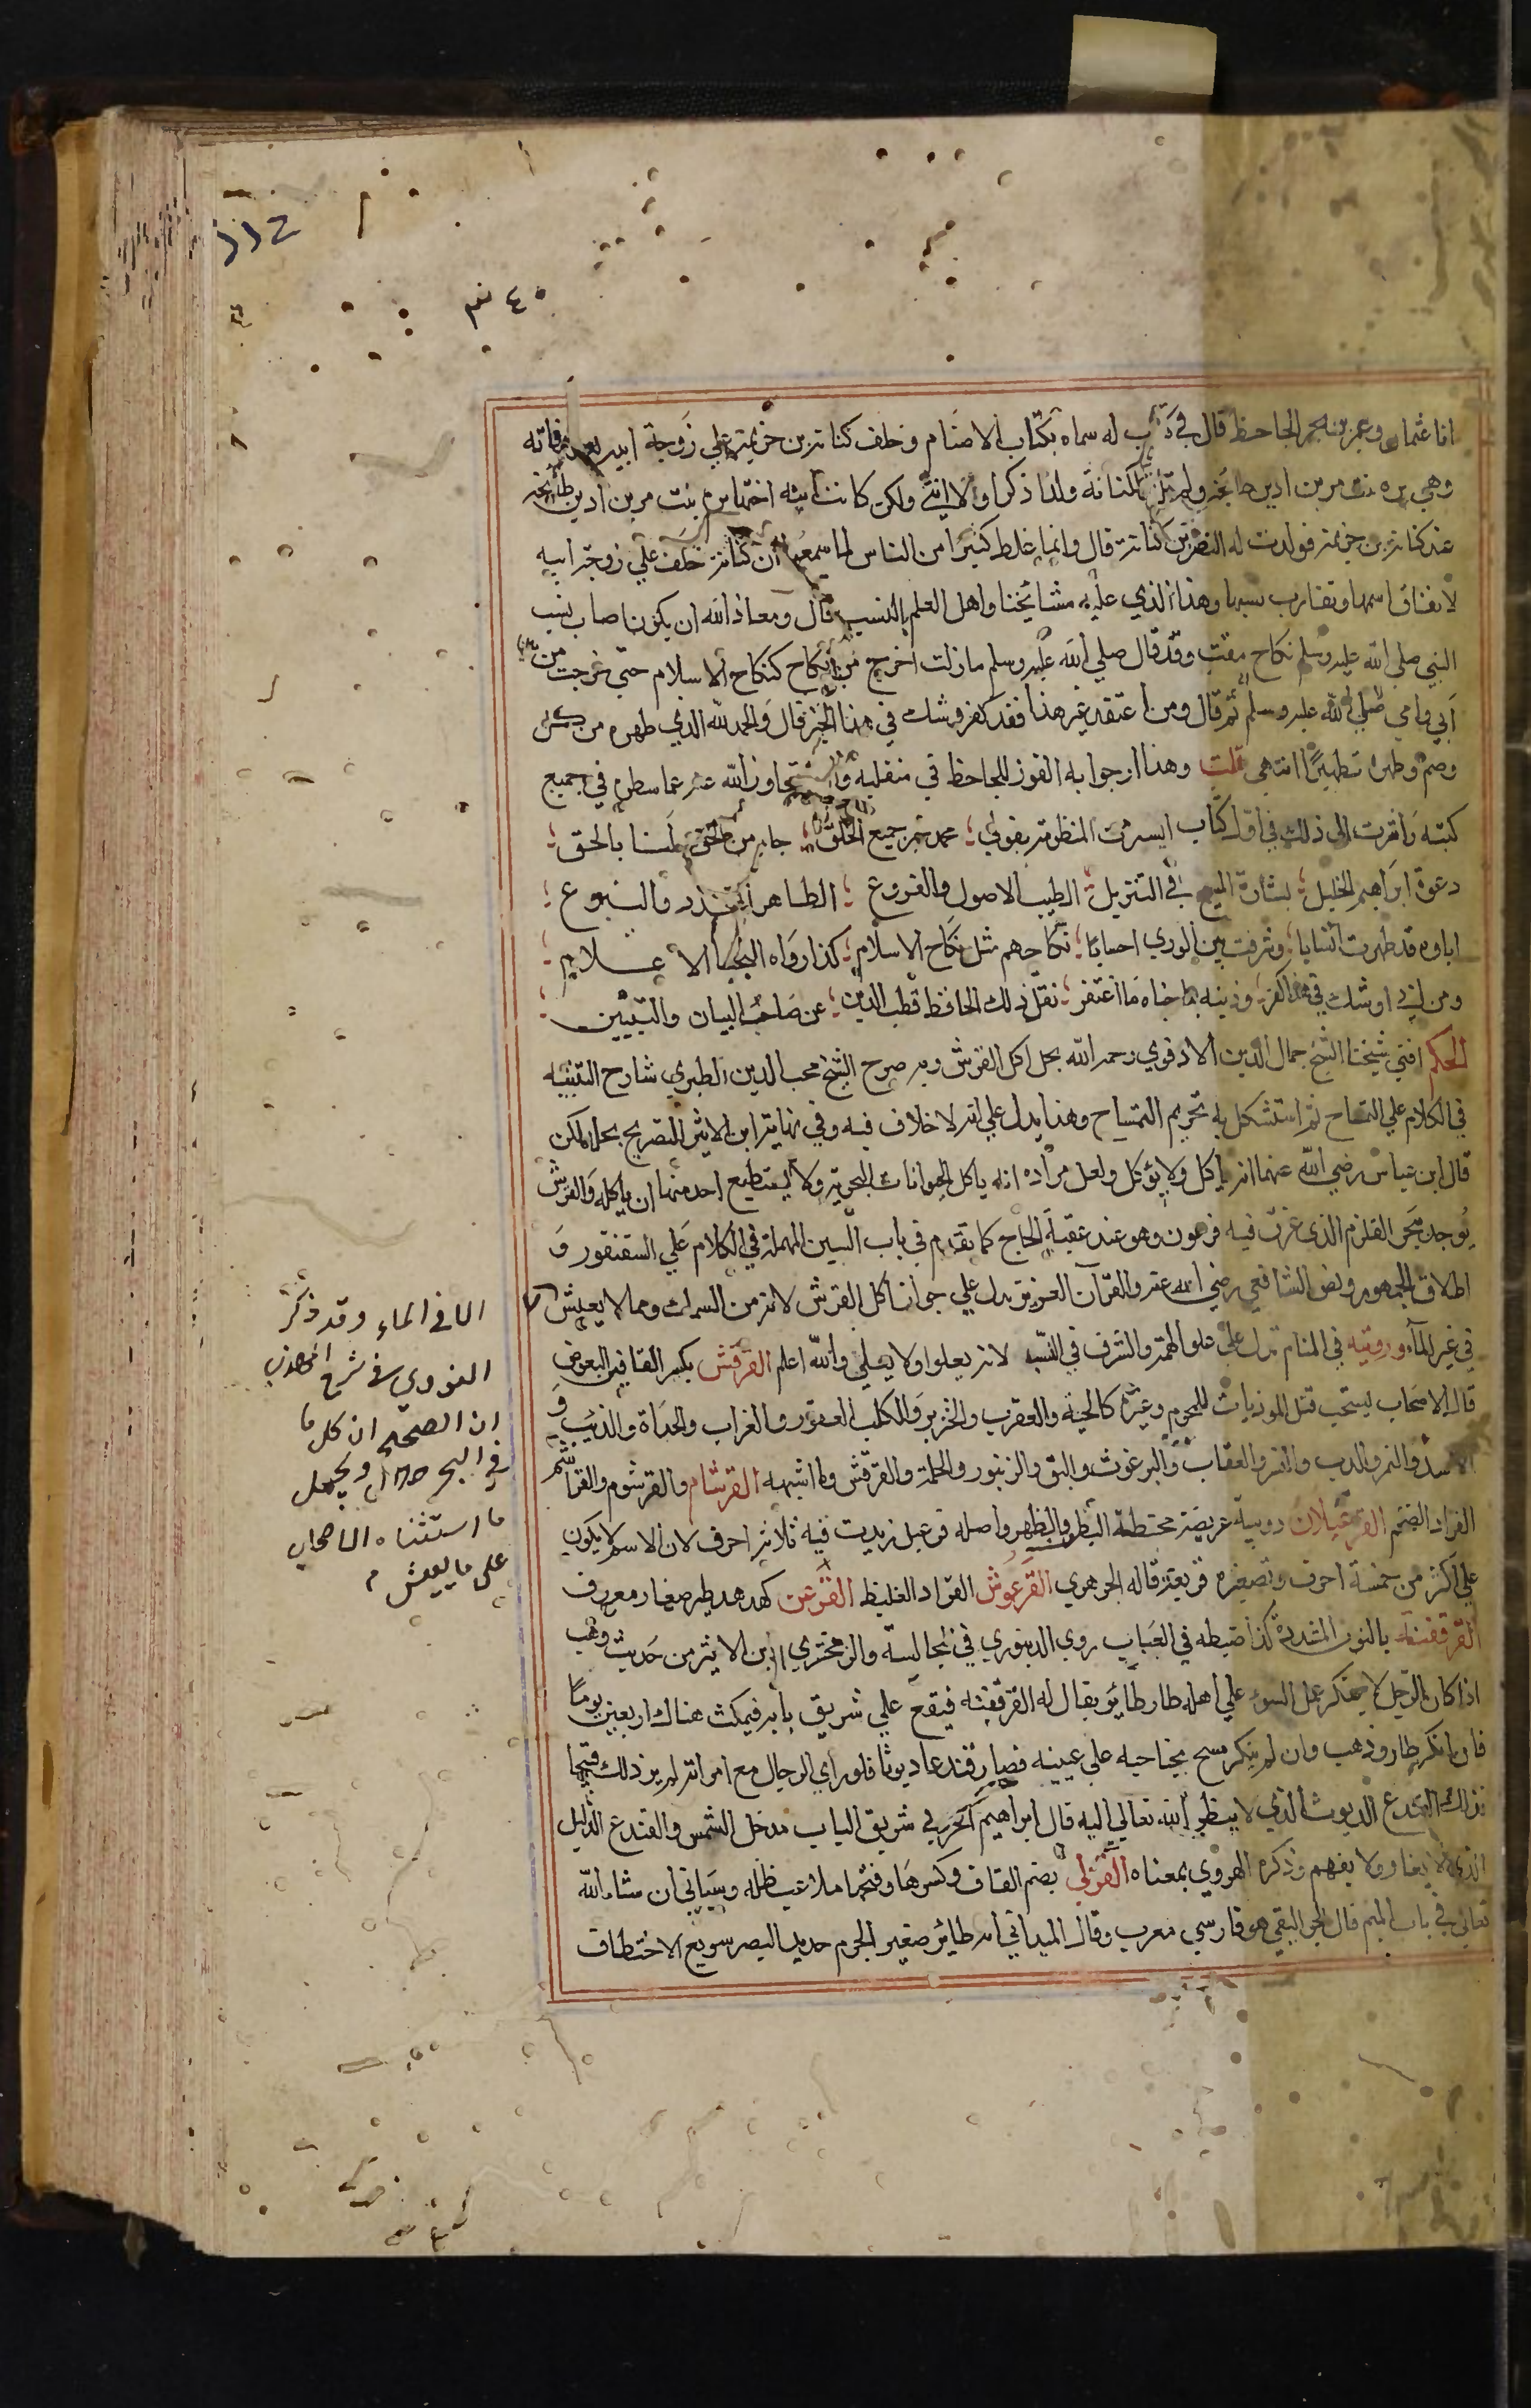 ١١٢
٤٠ نم
ابا عثمان وعمرو بن بحر الجاحظ قال في كتاب له سماه بكتاب الاصنام وخلف كنانة بن خزيمة على زوجة ابيه بعد وفاته
وهي بره بنت مر بن اد بن طابخة ولم تلد لكنانة ولدا ذكرا ولا انثى ولكن كانت ابنة اخيها بره بنت مر بن اد بن طابخة
عند كنانة بن خزيمة فولدت له النضر بن كنانة قال وانما غلط كثيرا من الناس لما سمعوا ان كنانة خلف علي زوجة ابيه
لاتفاق اسمها وتقارب نسبها وهذا الذي عليه مشائخنا واهل العلم بالنسب قال ومعاذ الله ان يكون اصاب نسب
النبي صلى الله عليه وسلم نكاح مقت وقد قال صلي الله عليه وسلم مازلت اخرج من نكاح كنكاح الاسلام حتى خرجت من
ابي وامي صلي الله عليه وسلم ثم قال ومن اعتقد غير هذا فقد كفر وشك في هذا الخبر قال والحمد لله الذي طهره من كل
وصم وطهره تطهيرا انتهى قلت وهذا ارجوا به الفوز للجاحظ في منقلبه وان يتجاوز الله عنه عما سطره في جميع
كتبه واشرت الى ذلك في اول كتاب المنظومة بقولي محمد خير جميع الخلق جا به من الحق لنا بالحق
دعوة ابراهيم الخليل بشارة المسيح في التنزيل الطيب الاصول والفروع الطاهر والينبوع
اباوه قد طهرت انسابا وشرفت بين الوري احسابا نكاحهم مثل نكاح الاسلام كذا رواه النجبا الاعلام
ومن ابي او شك في هذا كفر وذنبه بما جناه ما اغتفر نقل ذلك الحافظ قطب الدين عن صاحب البيان والتبيين
الحكم افتي شيخنا الشيخ جمال الدين الادفوي رحمه الله بحل اكل القرش وبه صرح الشيخ محب الدين الطبري شارح التنبيه
في الكلام علي التمساح ثم استشكل به تحريم التمساح وهذا يدل علي انه لا خلاف فيه وفي نهاية ابن الاثير التصريح بحله لكن
قال ابن عباس رضي الله عنهما انه ياكل ولا يؤكل ولعل مراده انه ياكل الحيوانات البحرية ولا يستطيع احد منها ان ياكله والقرش
يوجد ببحر القلزم الذي غرق فيه فرعون وهو عند عقبة الحاج كما تقدم في باب السين المهملة في الكلام علي السقنقور و
اطلاق الجمهور ونص الشافعي رضي الله عنه والقرآن العزيز يدل علي جواز اكل القرش لانه من السمك ومما لا يعيش
في غير الماء ورويته في المنام تدل على علو الهمة والشرف في النسب لانه يعلوا ولا يعلي والله اعلم القرقش بكسر القافين البعوض
قال الاصحاب يستحب قتل الموذيات للمحرم وغيره كالحية والعقرب والخنزير والكلب العقور والغراب والحداة والذئب و
الاسد والنمر والدب والنسر والعقاب والبرغوث والبق والزنبور والحلمة والقرقش وما اشبهه القرشام والقرشوم والقراشم
القراد الضخم القرعبلانة دويبة عريضة محتطئة البطن والظهر واصله قرعبل زيدت فيه ثلاثة احرف لان الاسم لا يكون
علي اكثر من خمسة احرف وتصغيره قريعبة قاله الجوهري القرعوش القراد الغليظ القرعن كهدهد طير صغار معروف
القرقفنة بالنون المشددة كذا ضبطه في العباب روي الدينوري في المجالسة والزمخشري ابن الاثير من حديث وهب
اذا كان الرجل لا ينكر عمل السوء علي اهله طار طائر يقال له القرقفنة فيقع علي شريق بابه فيمكث هناك اربعين يوما
فان انكر طار وذهب وان لم ينكر مسح بجناحيه علي عينيه فصار قندعا ديوثا فلو راي الرجال مع امراته لم ير ذلك قبيحا
فذلك القندع الديوث الذي لا ينظر الله تعالى اليه قال ابراهيم الحربي شريق الباب مدخل الشمس والقندع الذليل
الذي لا يغار ولا يفهم وذكره الهروي بمعناه القزلي بضم القاف وكسرها وفتحها ملاعب ظله وسياتي ان شاء الله
تعالى في باب الميم قال الجواليقي هو فارسي معرب وقال الميداني انه طائر صغير الجرم حديد البصر سريع الاختطاف
الا في الماء وقد ذكر
النووي في شرح المهذب
ان الصحيح ان كل ما
في البحر حلال ويحمل
ما استثناه الاصحاب
على ما يعيش